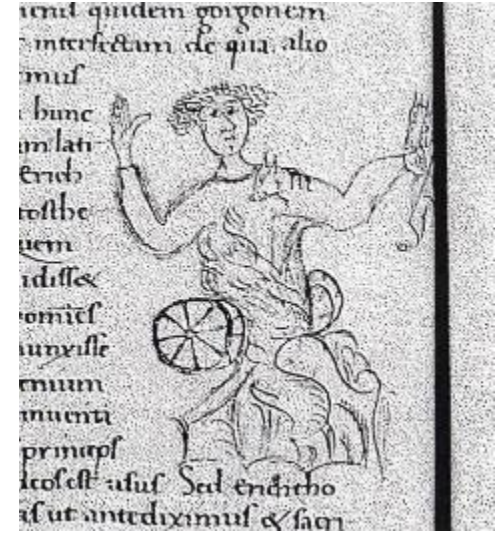 quidem gorgonem
interfectam de qua alio
mus
hunc
m lati
Erich
tosthe
uem
idiss&
iunxisse
enium
inuenti
princeps
deos est usus Sed erichtho
is ut antediximus & sacri